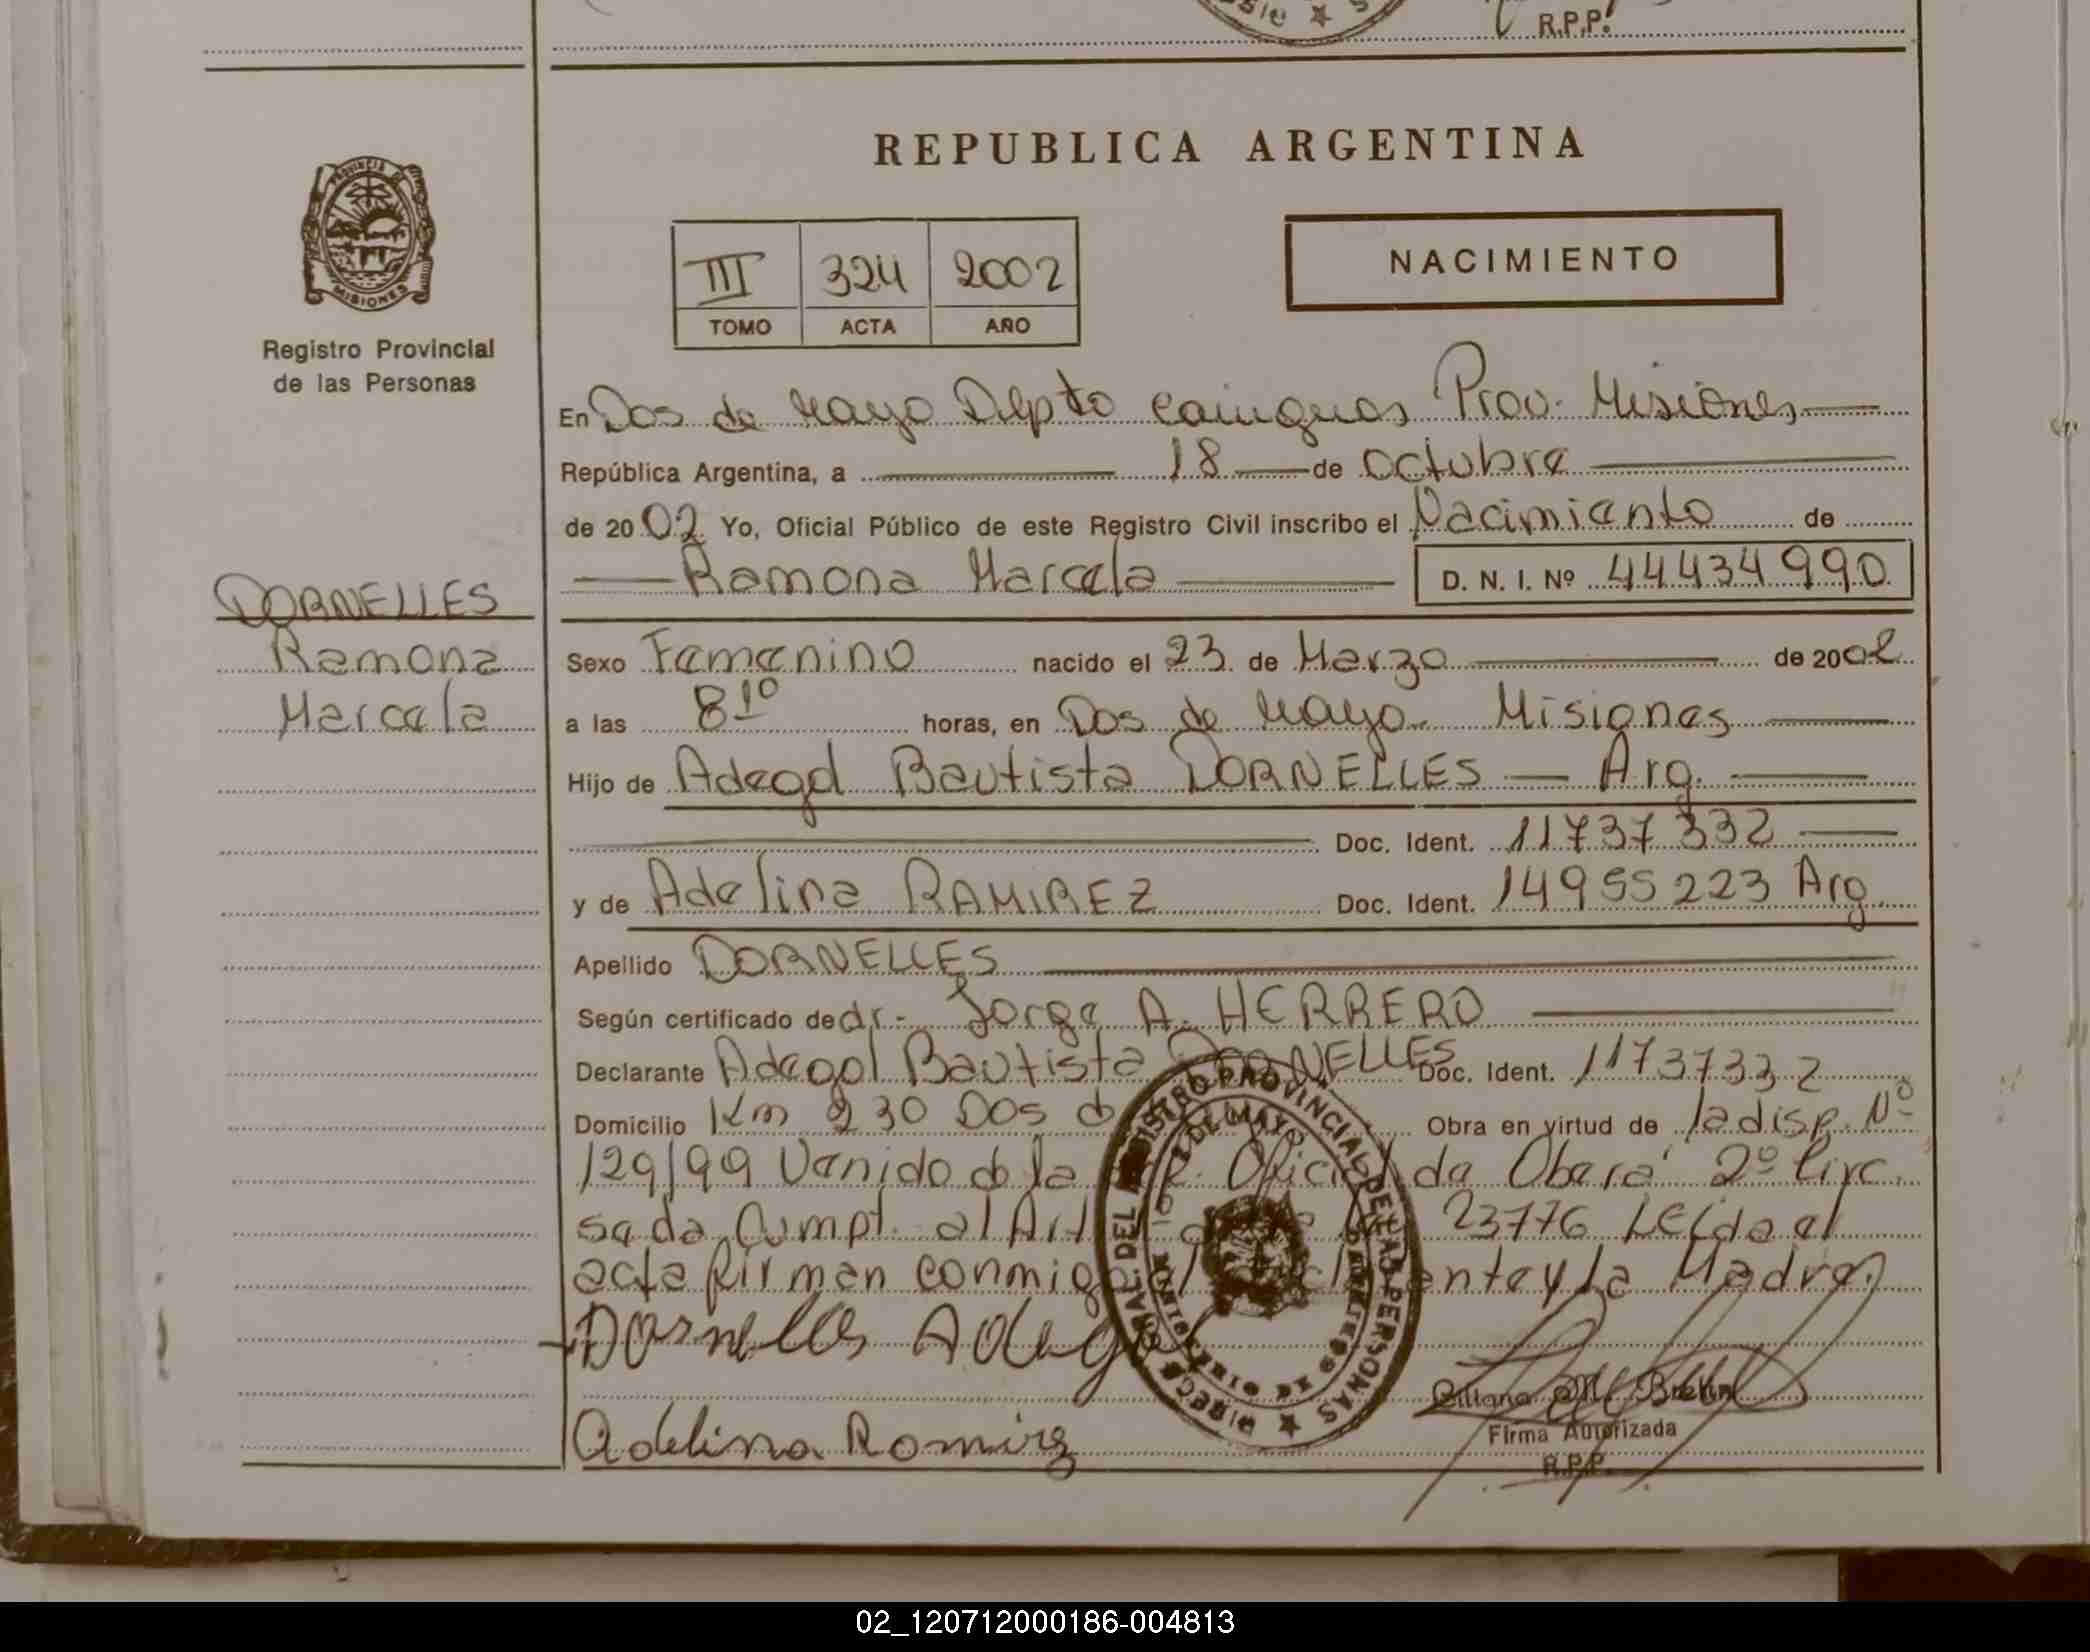 R.P.P.
REPUBLICA ARGENTINA
PROVINCIA DE MISIONES
Registro Provincial
de las Personas
III 324 2002
TOMO ACTA AÑO
NACIMIENTO
En Dos de Mayo Dpto Cainguas Prov. Misiones
República Argentina, a 18 de Octubre
de 2002 Yo, Oficial Público de este Registro Civil inscribo el Nacimiento de
Ramona Marcela D. N. I. Nº 44434990
DORNELLES
Ramona
Marcela
Sexo Femenino nacido el 23 de Marzo de 2002
a las 8 10 horas, en Dos de Mayo Misiones
Hijo de Adegol Bautista DORNELLES Arg.
Doc. Ident. 11737332
y de Adelina RAMIREZ Doc. Ident. 14955223 Arg
Apellido DORNELLES
Según certificado de dr. Jorge A. HERRERO
Declarante Adegol Bautista DORNELLES Doc. Ident. 11737332
Domicilio Km 230 Dos d Obra en virtud de la disp. Nº
129/99 Venido d la de Oberá 2º Circ.
sede Cumpt. al Art 23776 Leída el
acta firman conmigo y la Madre.
Dornelles Adeg
Adelina Ramirez
DIRECC. GRAL. DEL REGISTRO PROVINCIAL DE LAS PERSONAS
Brehm
Firma Autorizada
R.P.P.
02_120712000186-004813